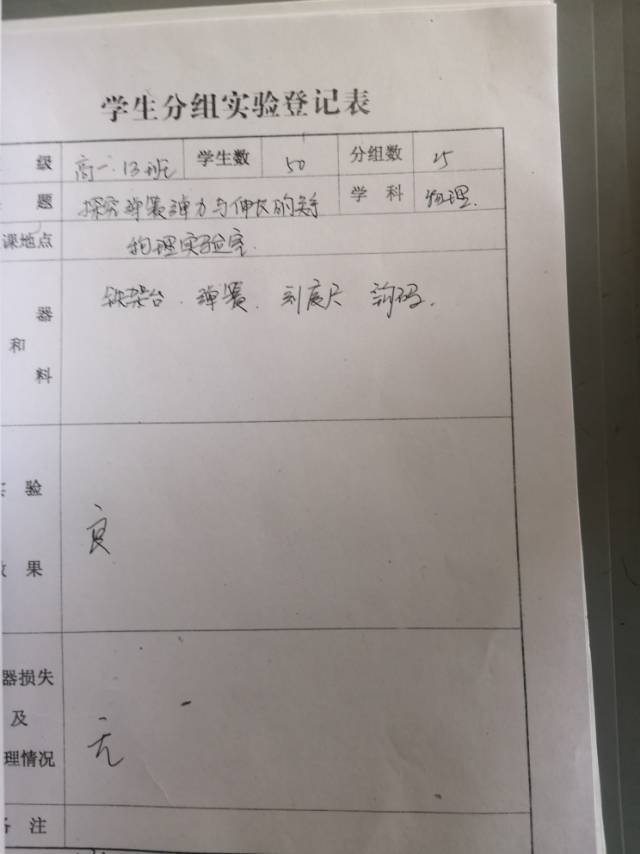 学生分组实验登记表
级 高一.13班 学生数 50 分组数 25
题 探究弹簧弹力与伸长的关系 学 科 物理.
课地点 物理实验室.
器
和
料
铁架台. 弹簧. 刻度尺 钩码.
实 验
效 果
良
器损失
及
理情况
无
备 注